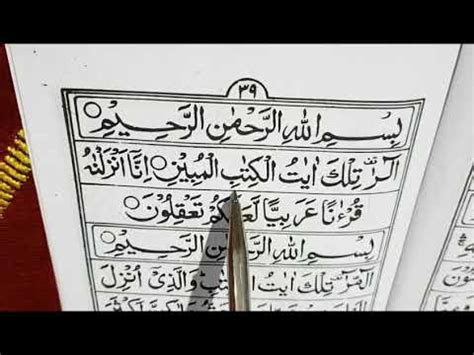 ٣٩
بِسْمِ اللهِ الرَّحْمٰنِ الرَّحِيْمِ○
الٓرٰ تِلْكَ اٰيٰتُ الْكِتٰبِ الْمُبِيْنِ○ اِنَّاۤ اَنْزَلْنٰهُ
قُرْءٰنًا عَرَبِيًّا لَعَلَّكُمْ تَعْقِلُوْنَ○
بِسْمِ اللهِ الرَّحْمٰنِ الرَّحِيْمِ○
الٓمّٓرٰ تِلْكَ اٰيٰتُ الْكِتٰبِ وَالَّذِيْ اُنْزِلَ